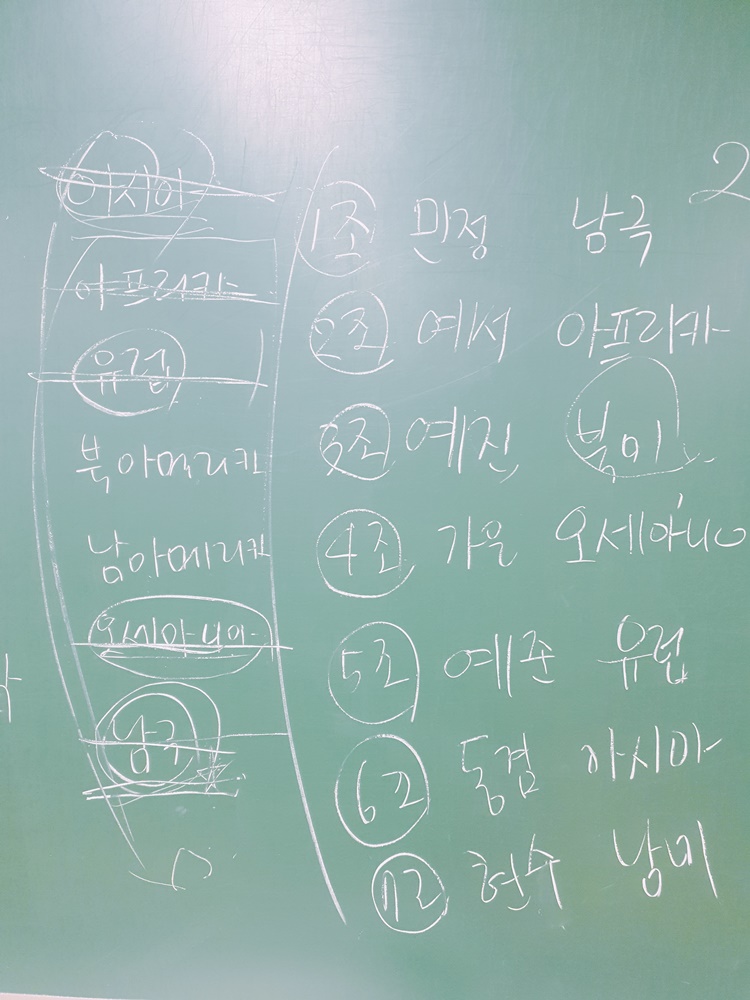 아시아
아프리카
유럽
북아메리카
남아메리카
오세아니아
남극
2
1조 민정 남극
2조 예서 아프리카
3조 예진 북미
4조 가은 오세아니아
5조 예준 유럽
6조 동겸 아시아
7조 현수 남미